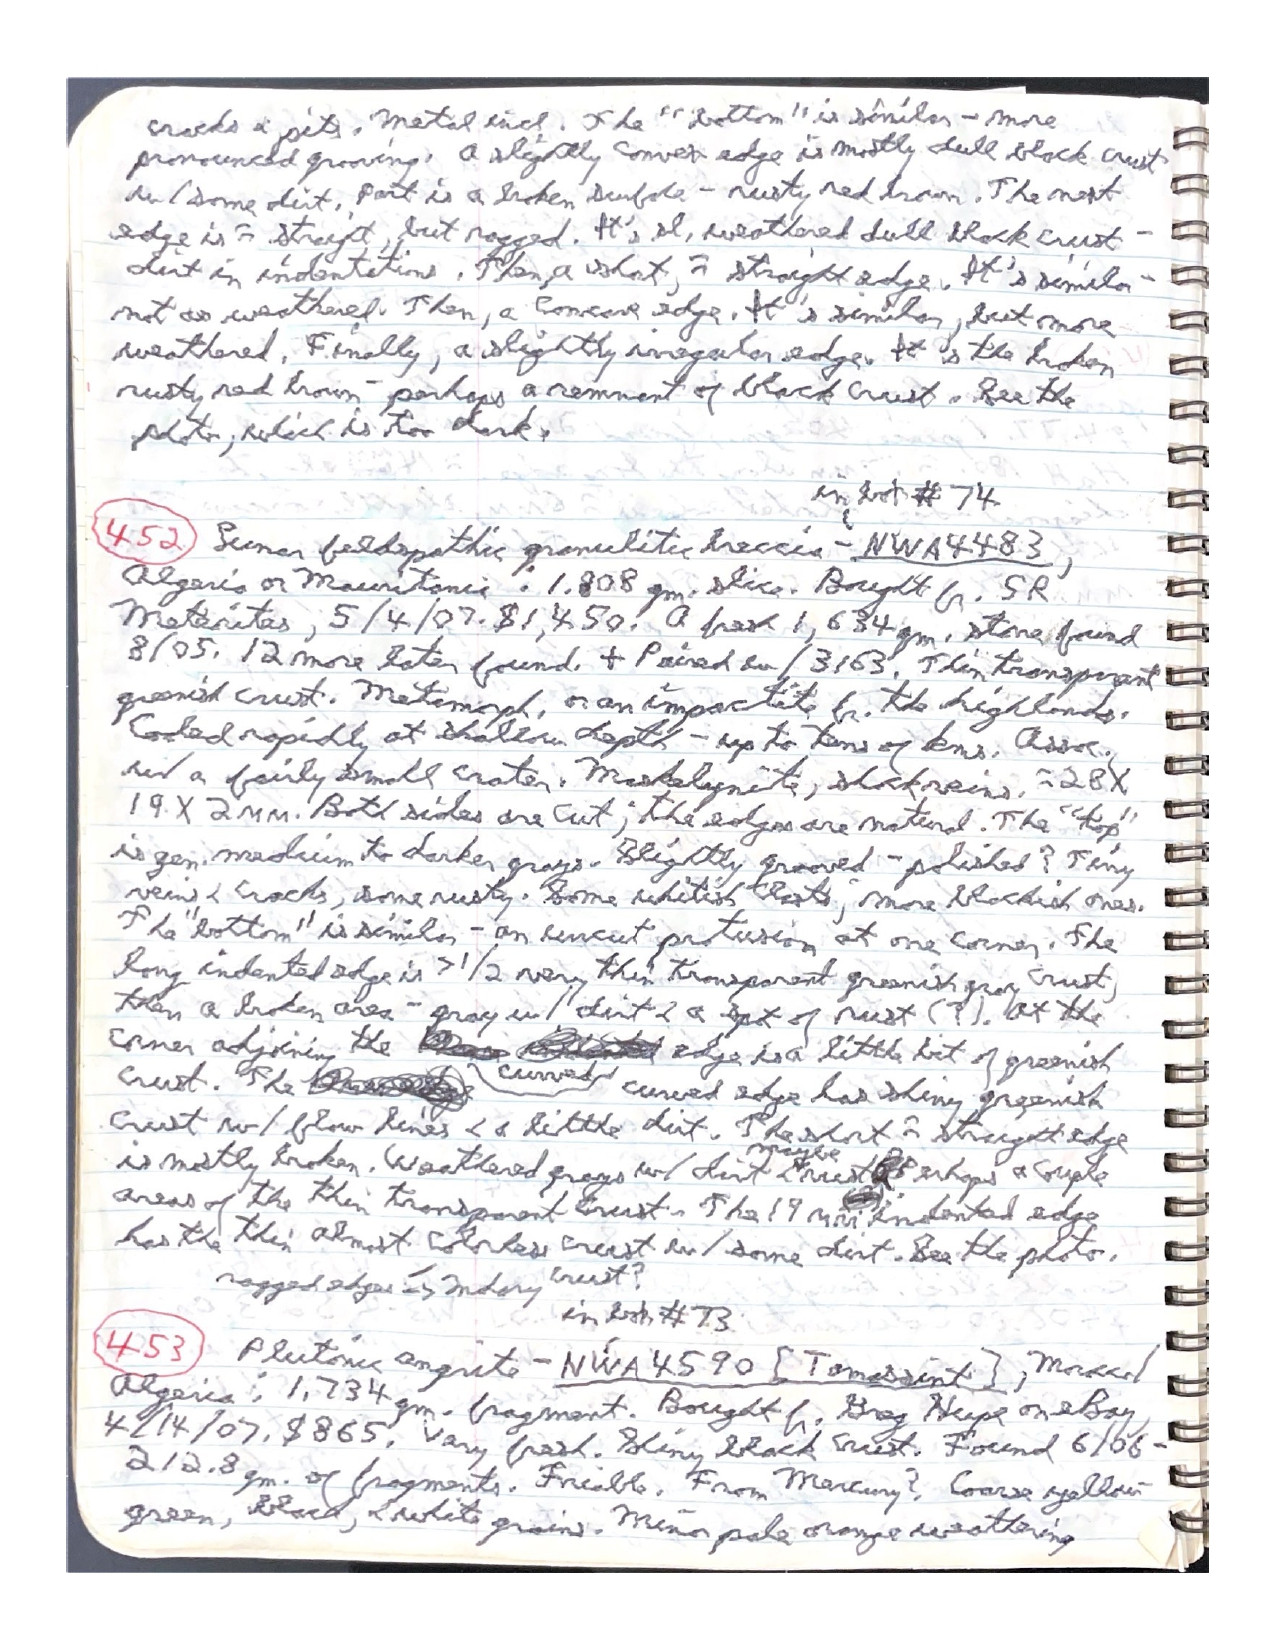 cracks & pits. Metal incl. The "bottom" is similar - more
pronounced grooving. A slightly convex edge is mostly dull black crust
w/ some dirt. Part is a broken surface - rusty red brown. The next
edge is ≈ straight, but ragged. It's sl. weathered dull black crust -
dirt in indentitions. Then, a short, ≈ straight edge. It's similar -
not as weathered. Then, a concave edge. It's similar, but more
weathered. Finally, a slightly irregular edge. It's the broken
rusty red brown - perhaps a remnant of black crust. See the
photo, which is too dark.
in bot. # 74
452 Lunar feldspathic granulitic breccia - NWA4483,
Algeria or Mauritania: 1.808 gm. slice. Bought fr. SR
Meteorites, 5/4/07. $1,450. A fresh 1,634 gm. stone found
8/05. 12 more later found. + Paired w/ 3163. Thin transparent
greenish crust. Metamorph. or an impactite fr. the highlands.
Cooled rapidly at shallow depth - up to tens of kms. Assoc.
w/ a fairly small crater. Maskelynite, shock veins. ≈28 X
19 X 2 mm. Both sides are cut; the edges are natural. The "top"
is gen. medium to darker grays. Slightly grooved - polished? Tiny
veins & cracks, some rusty. Some whitish clasts; more blackish ones.
The "bottom" is similar - an uncut protusion at one corner. The
long indented edge is >1/2 very thin transparent greenish gray crust,
then a broken area - gray w/ dirt & a spot of rust (?). At the
corner adjoining the curved edge is a little bit of greenish
crust. The curved edge has shiny greenish
crust w/ flow lines & a little dirt. The short ≈ straight edge
is mostly broken. Weathered grays w/ dirt & maybe rust. Perhaps a couple
areas of the thin transparent crust. The 19 mm indented edge
has the thin almost colorless crust w/ some dirt. See the photo.
ragged edges is 2ndary crust?
in bot. # 73
453 Plutonic angrite - NWA4590 [Tamassint], Morocco/
Algeria: 1.734 gm. fragment. Bought fr. Greg Hupe on eBay,
4/14/07. $865. Very fresh. Shiny black crust. Found 6/06 -
212.8 gm. of fragments. Friable. From Mercury?. Coarse yellow
green, black, & white grains. Minor pale orange weathering